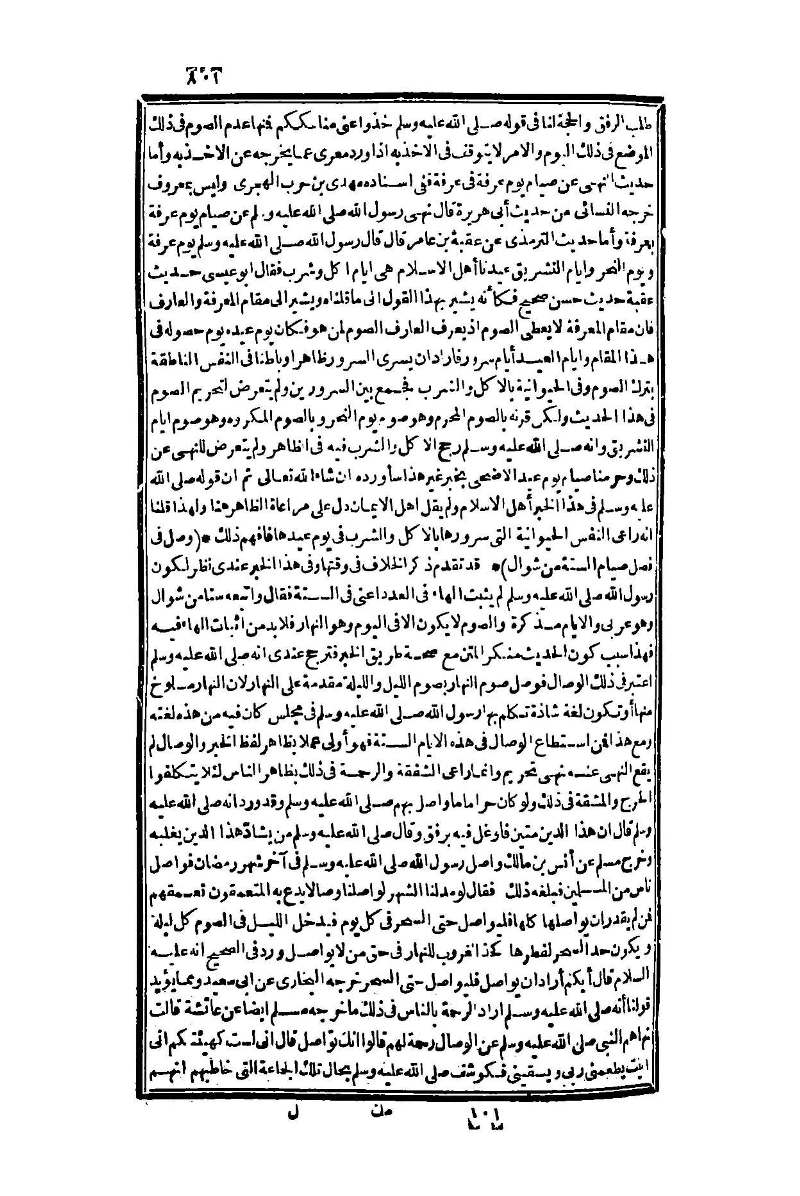 ٨٠٢
طلب الرفق والحجة لنا فى قوله صلى الله عليه وسلم خذوا عنى مناسككم فنها عدم الصوم فى ذلك
الموضع فى ذلك اليوم والامر لا يتوقف فى الاخذ به اذا ورد معرى عما يخرجه عن الاخذ به وأما
حديث النهى عن صيام يوم عرفة فى عرفة ففى اسناده مهدى بن حرب الهجرى وليس بمعروف
خرجه النسائى من حديث أبى هريرة قال نهى رسول الله صلى الله عليه وسلم عن صيام يوم عرفة
بعرفة وأما حديث الترمذى عن عقبة بن عامر قال قال رسول الله صلى الله عليه وسلم يوم عرفة
ويوم النحر وايام التشريق عيدنا أهل الاسلام هى ايام اكل وشرب فقال ابو عيسى حديث
عقبة حديث حسن صحيح فكأنه يشير بهذا القول الى ما قلناه ويشير الى مقام المعرفة والعارف
فان مقام المعرفة لا يعطى الصوم اذ يعرف العارف الصوم لمن هو فكان يوم عيده يوم حصوله فى
هذا المقام وايام العيد أيام سرور فاراد ان يسرى السرور ظاهرا وباطنا فى النفس الناطقة
بترك الصوم وفى الحيوانية بالاكل والشرب فجمع بين السرورين ولم يتعرض لتحريم الصوم
فى هذا الحديث ولكن قرنه بالصوم المحرم وهو صوم يوم النحر وبالصوم المكروه وهو صوم ايام
التشريق وانه صلى الله عليه وسلم رجح الاكل والشرب فيه فى الظاهر ولم يتعرض للنهى عن
ذلك وحرمنا صيام يوم عيد الاضحى بخبر غير هذا سأورده ان شاء الله تعالى ثم ان قوله صلى الله
عليه وسلم فى هذا الخبر أهل الاسلام ولم يقل اهل الايمان دل على مراعاة الظاهر هنا ولهذا قلنا
انه راعى النفس الحيوانية التى سرورها بالاكل والشرب فى يوم عيدها فافهم ذلك *(وصل فى
فصل صيام الستة من شوال)* قد تقدم ذكر الخلاف فى وقتها وفى هذا الخبر عندى نظر لكون
رسول الله صلى الله عليه وسلم لم يثبت الهاء فى العدد اعنى فى الستة فقال واتبعه ستا من شوال
وهو عربى والايام مذكرة والصوم لا يكون الا فى اليوم وهو النهار فلا بد من اثبات الهاء فيه
فهذا سبب كون الحديث منكر المتن مع صحة طريق الخبر فترجح عندى انه صلى الله عليه وسلم
اعتبر فى ذلك الوصال فوصل صوم النهار بصوم الليل والليلة مقدمة على النهار لان النهار مسلوخ
منها أو تكون لغة شاذة تكلم بها رسول الله صلى الله عليه وسلم فى مجلس كان فيه من هذه لغته
ومع هذا فمن استطاع الوصال فى هذه الايام الستة فهو أولى عملا بظاهر لفظ الخبر والوصال لم
يقع النهى عنه نهى تحريم وانما راعى الشفقة والرحمة فى ذلك بظاهر الناس لئلا يتكلفوا
الحرج والمشقة فى ذلك ولو كان حراما ما واصل بهم صلى الله عليه وسلم وقد ورد انه صلى الله عليه
وسلم قال ان هذا الدين متين فاوغل فيه برفق وقال صلى الله عليه وسلم من يشاد هذا الدين يغلبه
وخرج مسلم عن أنس بن مالك واصل رسول الله صلى الله عليه وسلم فى آخر شهر رمضان فواصل
ناس من المسلمين فبلغه ذلك فقال لو مد لنا الشهر لواصلنا وصالا يدع به المتعمقون تعمقهم
فمن لم يقدر ان يواصلها كلها فليواصل حتى السحر فى كل يوم فيدخل الليل فى الصوم كل ليلة
ويكون حد السحر لفطرها كحد الغروب للنهار فى حق من لا يواصل ورد فى الصحيح انه عليه
السلام قال أيكم أراد ان يواصل فليواصل حتى السحر خرجه البخارى عن ابى سعيد ومما يؤيد
قولنا أنه صلى الله عليه وسلم اراد الرحمة بالناس فى ذلك ما خرجه مسلم ايضا عن عائشة قالت
نهاهم النبى صلى الله عليه وسلم عن الوصال رحمة لهم قالوا انك تواصل قال انى لست كهيئتكم انى
ابيت يطعمنى ربى ويسقينى فكوشف صلى الله عليه وسلم بحال تلك الجماعة التى خاطبهم انهم
١٠١ من ل